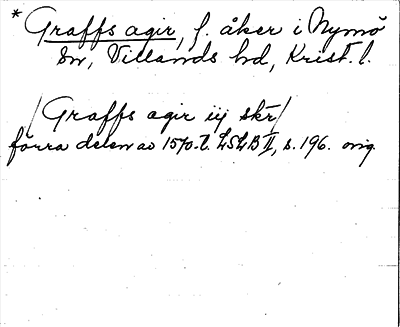 * Graffs agir, f. åker i Nymö
sn, Villands hd, Krist. l.
/Graffs agir iij skr/
förra delen av 1570-t. LSLB II, s. 196. orig.